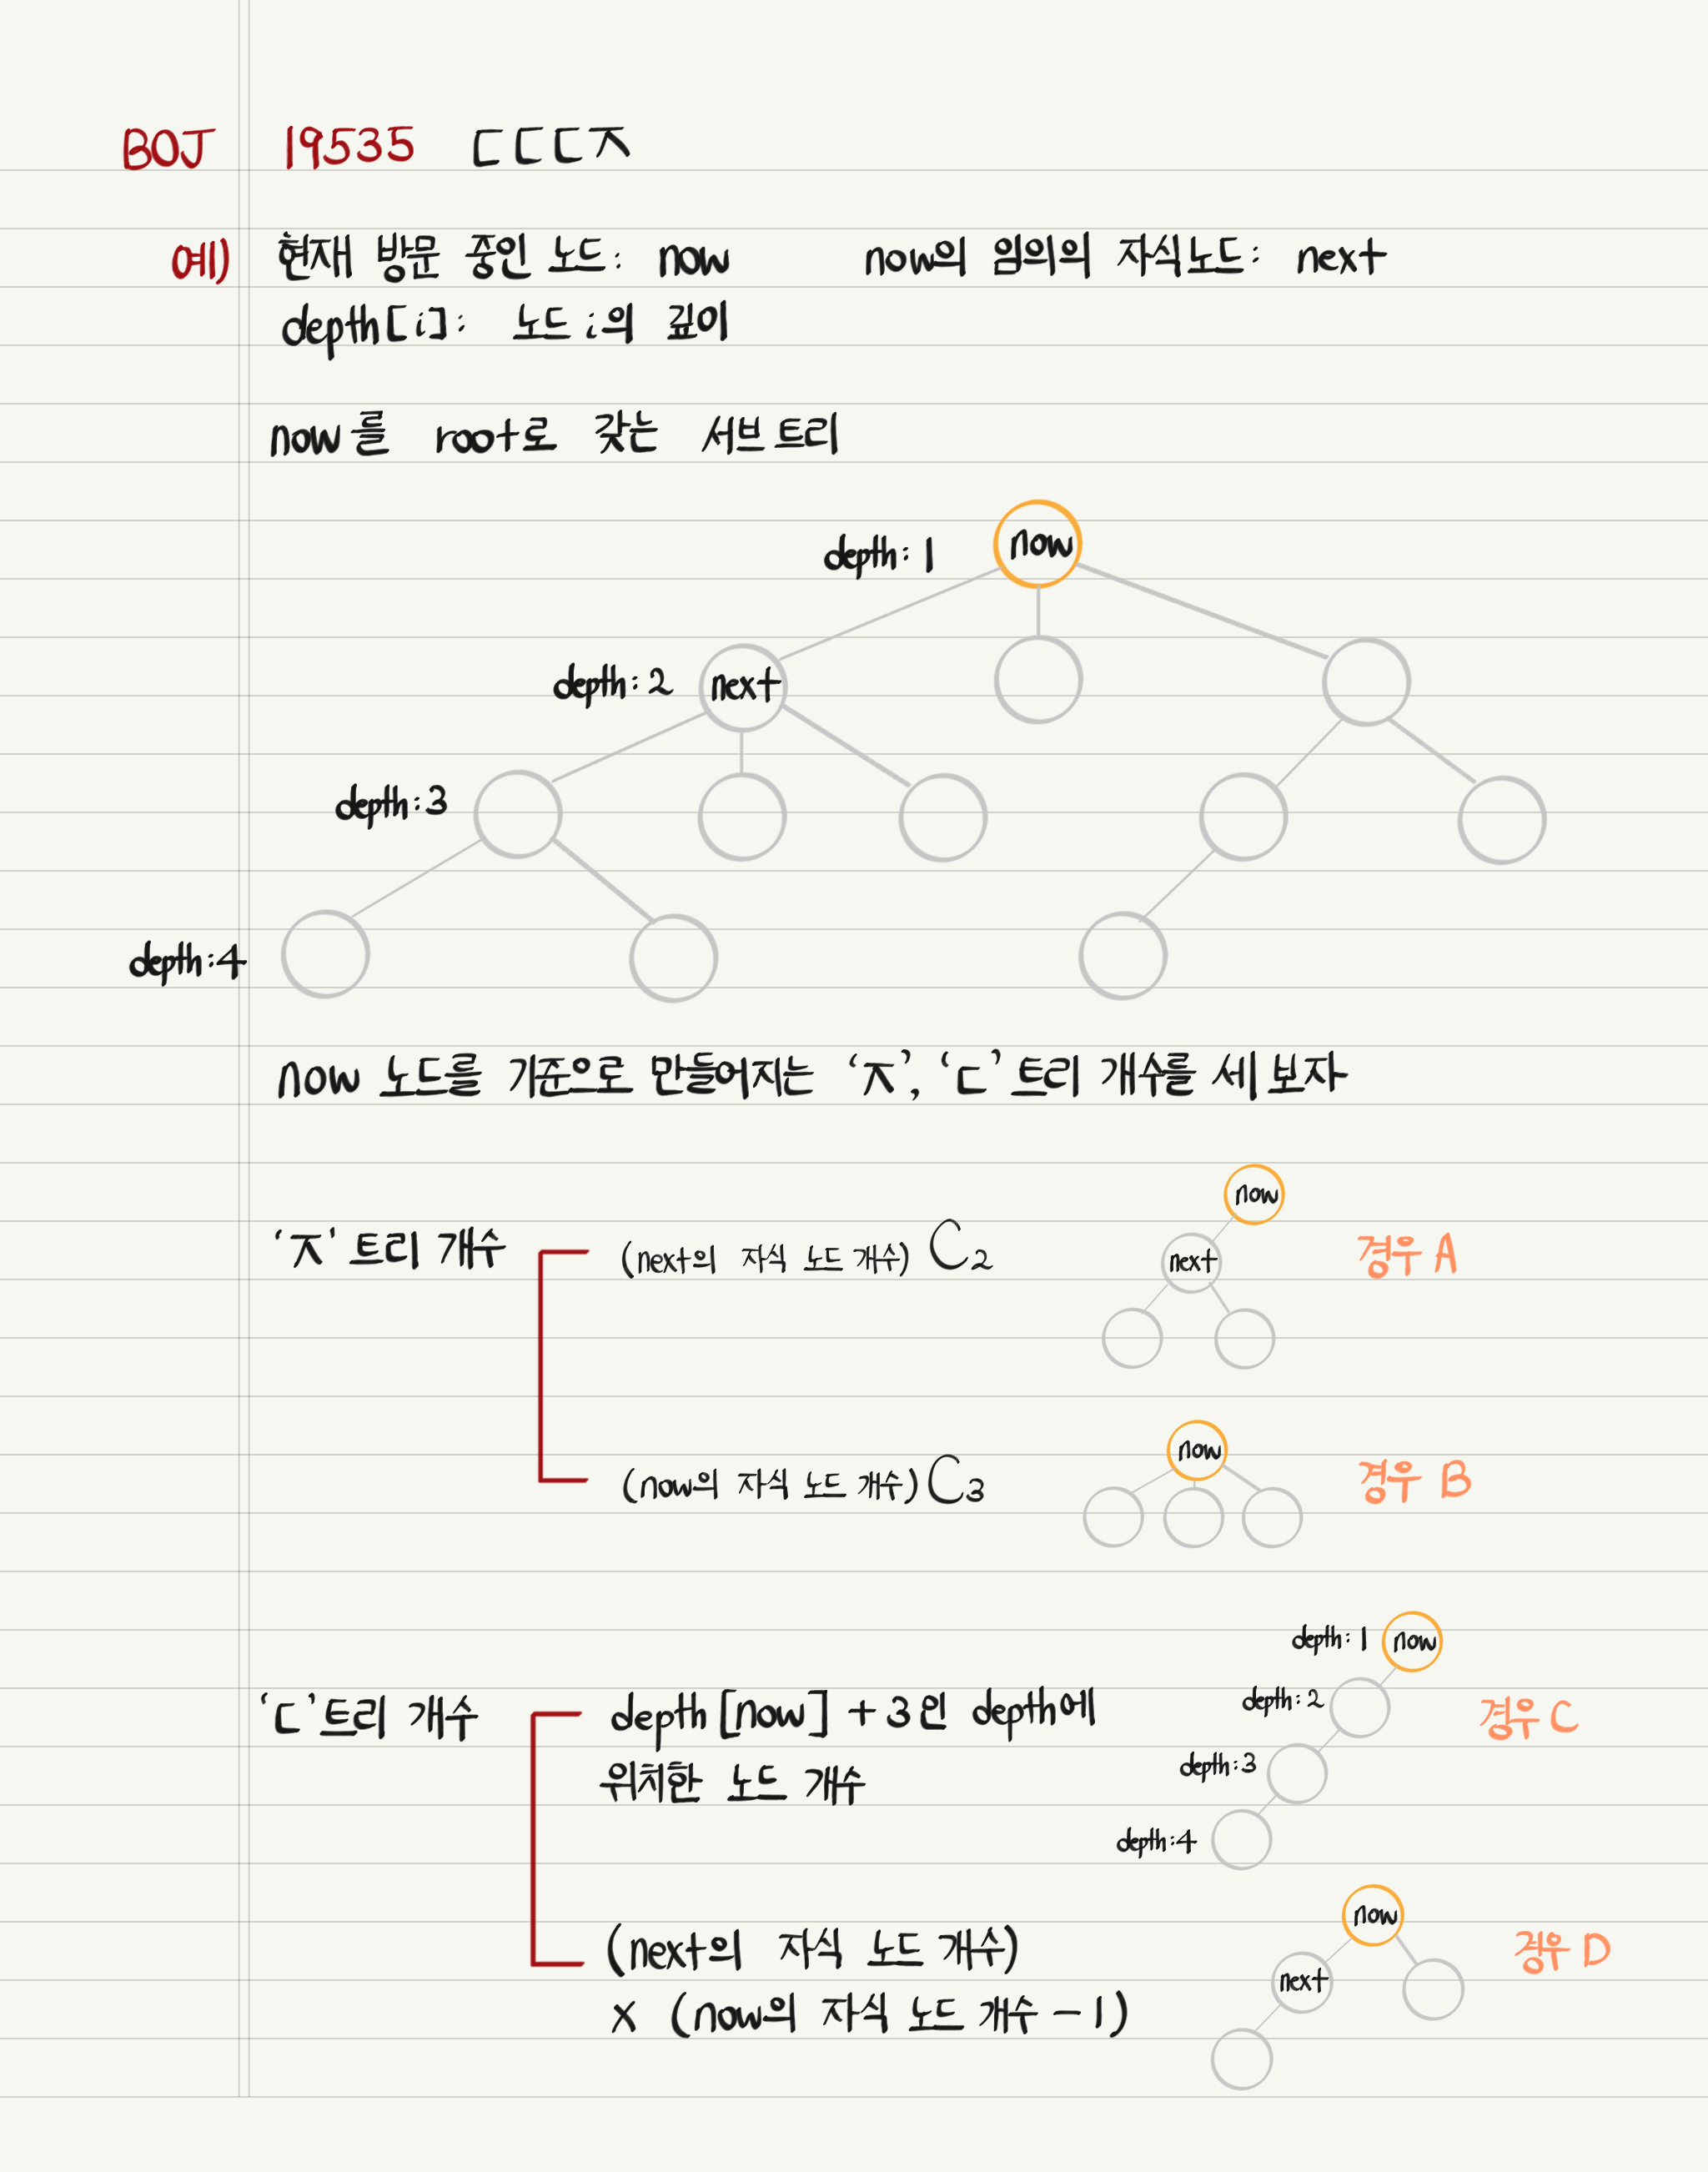 BOJ 19535 ㄷㄷㄷㅈ
예) 현재 방문 중인 노드: now now의 임의의 자식노드: next
depth[i]: 노드 i의 깊이
now를 root로 갖는 서브트리
depth: 1 now
depth: 2 next
depth: 3
depth: 4
now 노드를 기준으로 만들어지는 'ㅈ', 'ㄷ' 트리 개수를 세 보자
now
'ㅈ' 트리 개수 (next의 자식 노드 개수) C2 next 경우 A
now
(now의 자식 노드 개수) C3 경우 B
depth: 1 now
'ㄷ' 트리 개수 depth [now] + 3인 depth에 depth: 2 경우 C
위치한 노드 개수 depth: 3
depth: 4
now
(next의 자식 노드 개수) next 경우 D
x (now의 자식 노드 개수 - 1)